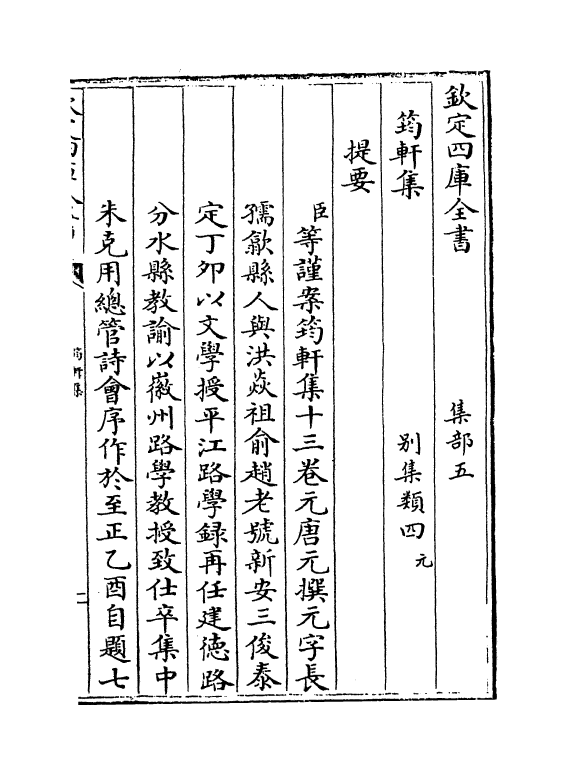 欽定四庫全書　集部五
筠軒集　别集類四元
提要
臣等謹案筠軒集十三卷元唐元撰元字長
孺歙縣人與洪焱祖俞趙老號新安三俊泰
定丁卯以文學授平江路學録再任建徳路
分水縣教諭以徽州路學教授致仕卒集中
朱克用總管詩㑹序作於至正乙酉自題七
筠軒集